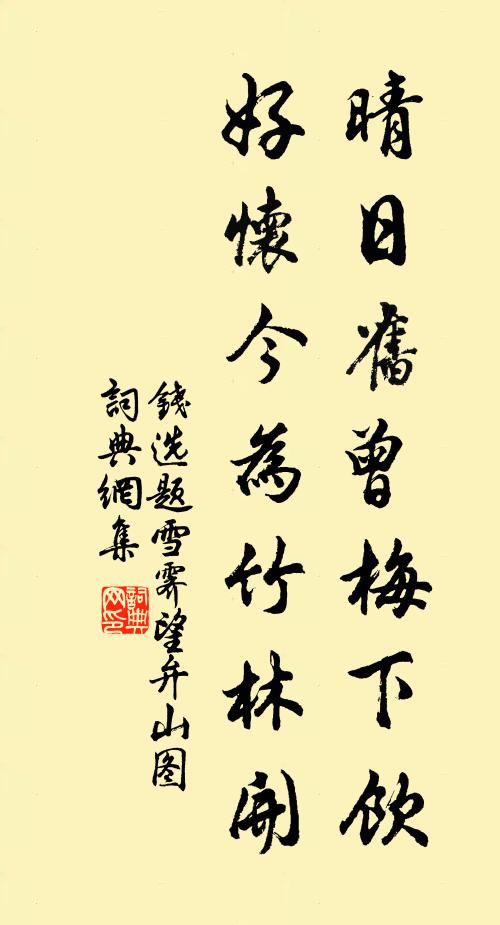 晴日舊曾梅下飲
好懷今為竹林開
錢选题雪霁望弁山图
詞典網集
詞典网印